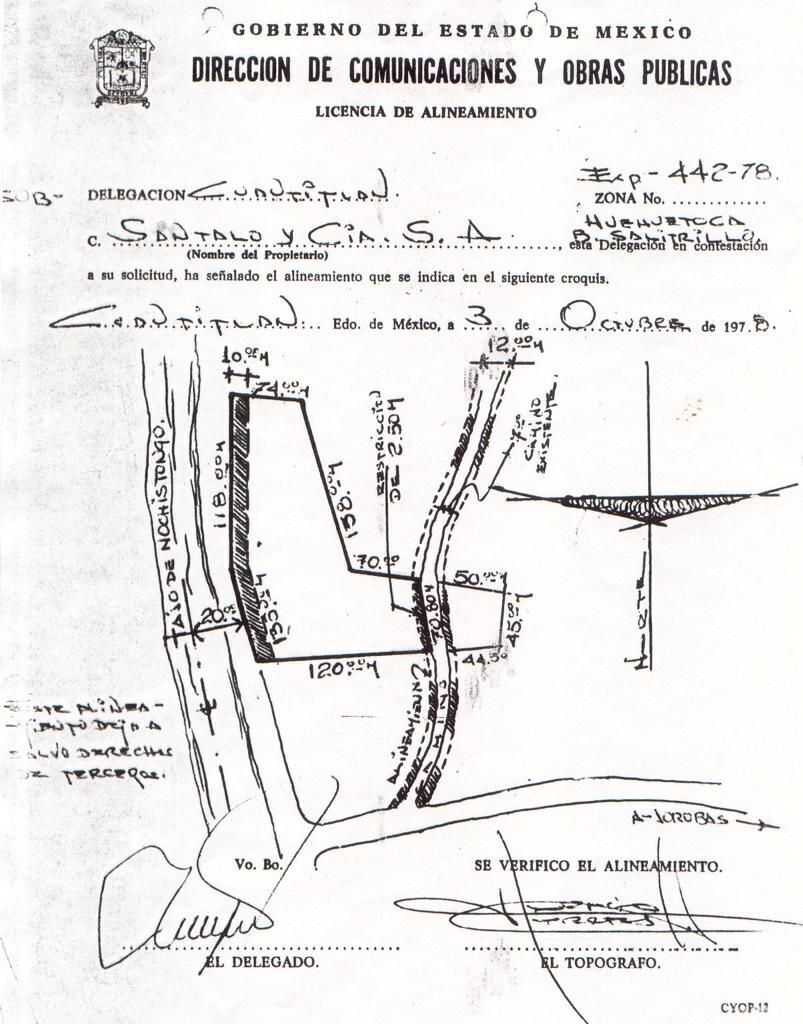 GOBIERNO DEL ESTADO DE MEXICO
DIRECCION DE COMUNICACIONES Y OBRAS PUBLICAS
LICENCIA DE ALINEAMIENTO
Exp-442-78.
SUB- DELEGACION CUAUTITLAN.
ZONA No. ..............
HUEHUETOCA
B. SALITRILLO.
C. SANTALO Y CIA. S. A. , esta Delegación en contestación
(Nombre del Propietario)
a su solicitud, ha señalado el alineamiento que se indica en el siguiente croquis.
CUAUTITLAN. Edo. de México, a 3 de OCTUBRE de 1978.
10.00M
12.00M
74.00M
RESTRICCION
DE 2.50M
7.00
CAMINO
EXISTENTE.
NOCHISTONGO.
118.00M
158.00M
70.00
50.00M
20.00
70.80M
45.00M
NORTE
120.00M
44.50
ALINEAMIENTO
CAMINO
ESTE ALINEA-
MIENTO DEJA A
SALVO DERECHOS
DE TERCEROS.
A-JOROBAS
Vo. Bo.
SE VERIFICO EL ALINEAMIENTO.
EL DELEGADO.
EL TOPOGRAFO.
CYOP-12